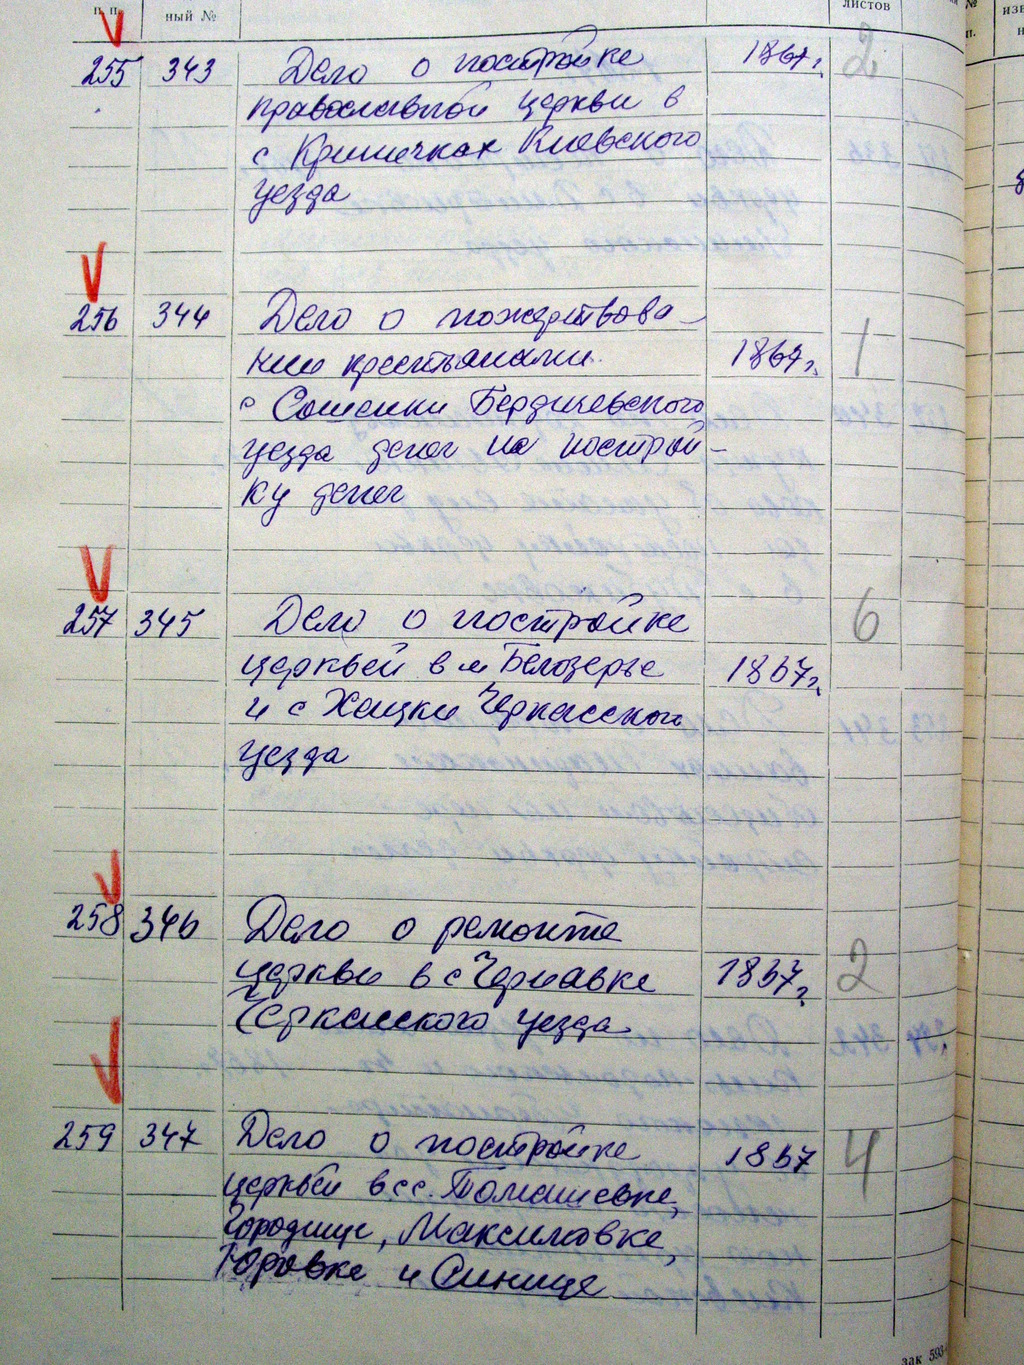 п.п. ный № листов №
255 343 Дело о постройке 1867г. 2
православной церкви в
с Криничках Киевского
уезда
256 344 Дело о пожертвова-
нии крестьянами 1867г. 1
с Сошенки Бердичевского
уезда денег на построй-
ку денег
257 345 Дело о постройке 6
церквей в м Белозерье 1867г.
и с Хацки Черкасского
уезда
258 346 Дело о ремонте
церкви в с Чернявке 1867г. 2
Черкасского уезда
259 347 Дело о постройке 1867 4
церквей в сс. Томашевке,
Городище, Максимовке,
Юровке и Синице
зак 593